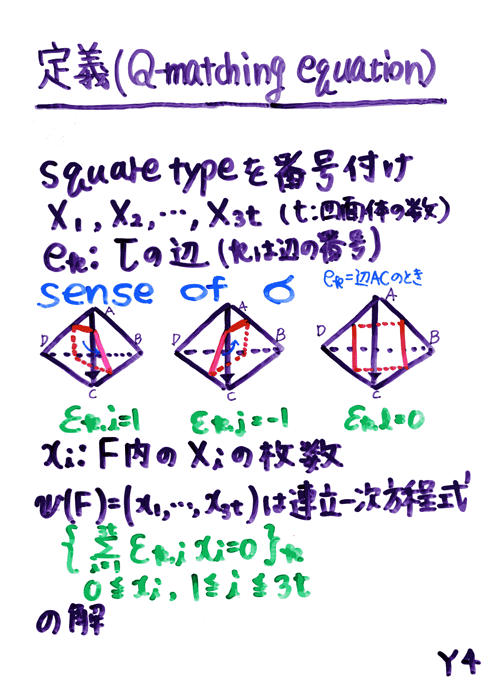 定義(Q-matching equation)
square typeを番号付け
X₁, X₂, …, X₃ₜ (t:四面体の数)
eₖ: τの辺 (kは辺の番号)
sense of σ
eₖ=辺ACのとき
A
D
B
C
A
D
B
C
A
D
B
C
εₖ,ᵢ=1
εₖ,ⱼ=-1
εₖ,ₗ=0
xᵢ: F内のXᵢの枚数
ψ(F)=(x₁,…,x₃ₜ)は連立一次方程式
{ Σᵢ₌₁³ᵗ εₖ,ᵢ xᵢ=0 }ₖ
0≦xᵢ, 1≦i≦3t
の解
Y4